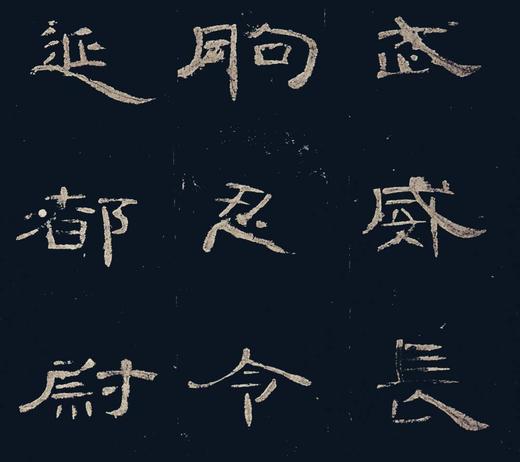 武威長
朐忍令
延都尉